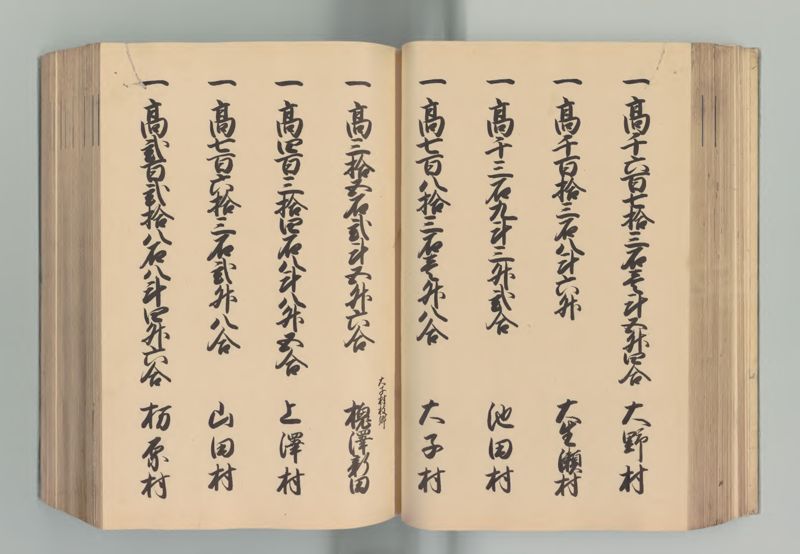 一 高千六百七拾三石壱斗五升四合 大野村
一 高千百拾三石八斗六升 大生瀬村
一 高千三石九斗三升弐合 池田村
一 高七百八拾三石壱升八合 大子村
大子村枝郷
一 高三拾五石弐斗五升六合 槐澤新田
一 高四百三拾四石八斗八升五合 上澤村
一 高七百六拾三石弐升八合 山田村
一 高弐百弐拾八石八斗四升六合 栃原村